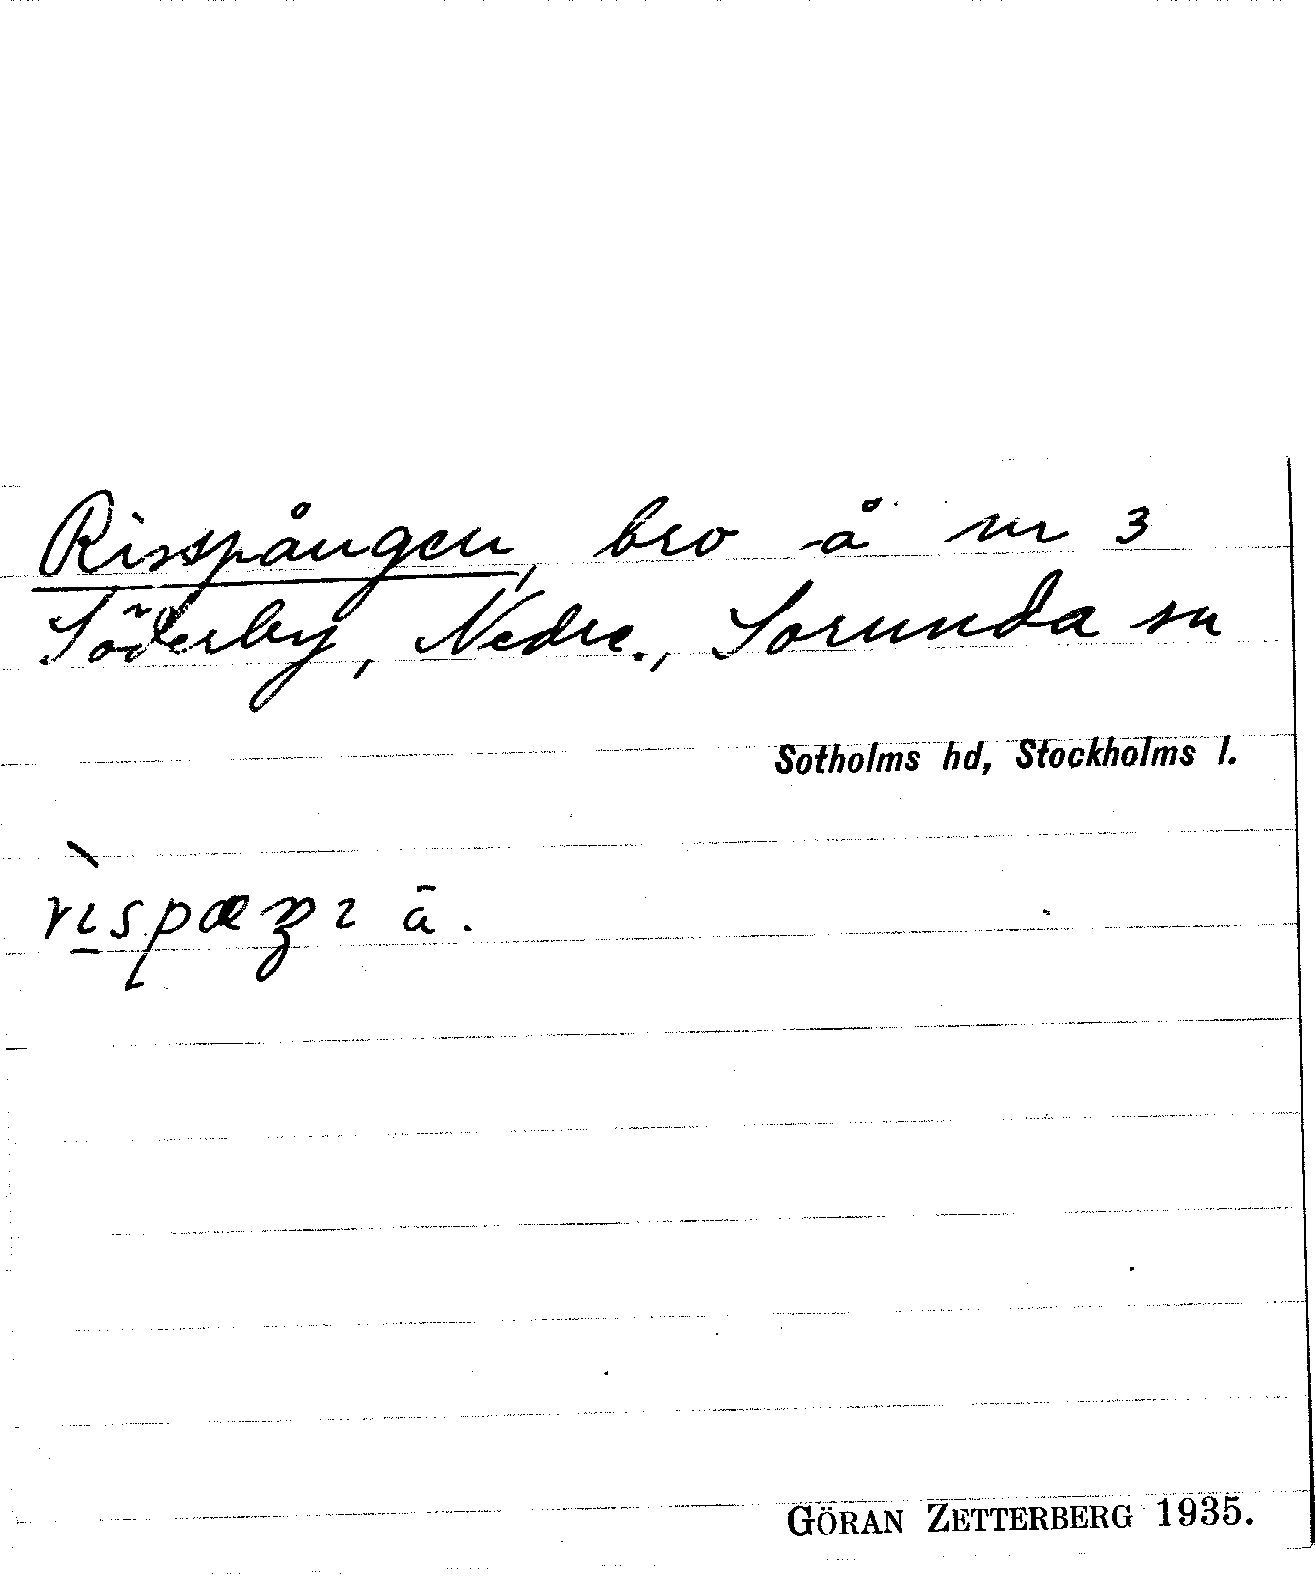 Risspången, bro å nr 3
Söderby, Nedre., Sorunda sn
Sotholms hd, Stockholms l.
ā.
GÖRAN ZETTERBERG 1935.